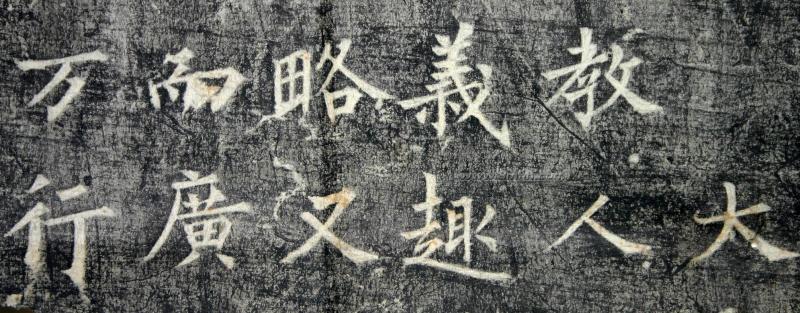 大
教人
義趣
略又
而廣
万行